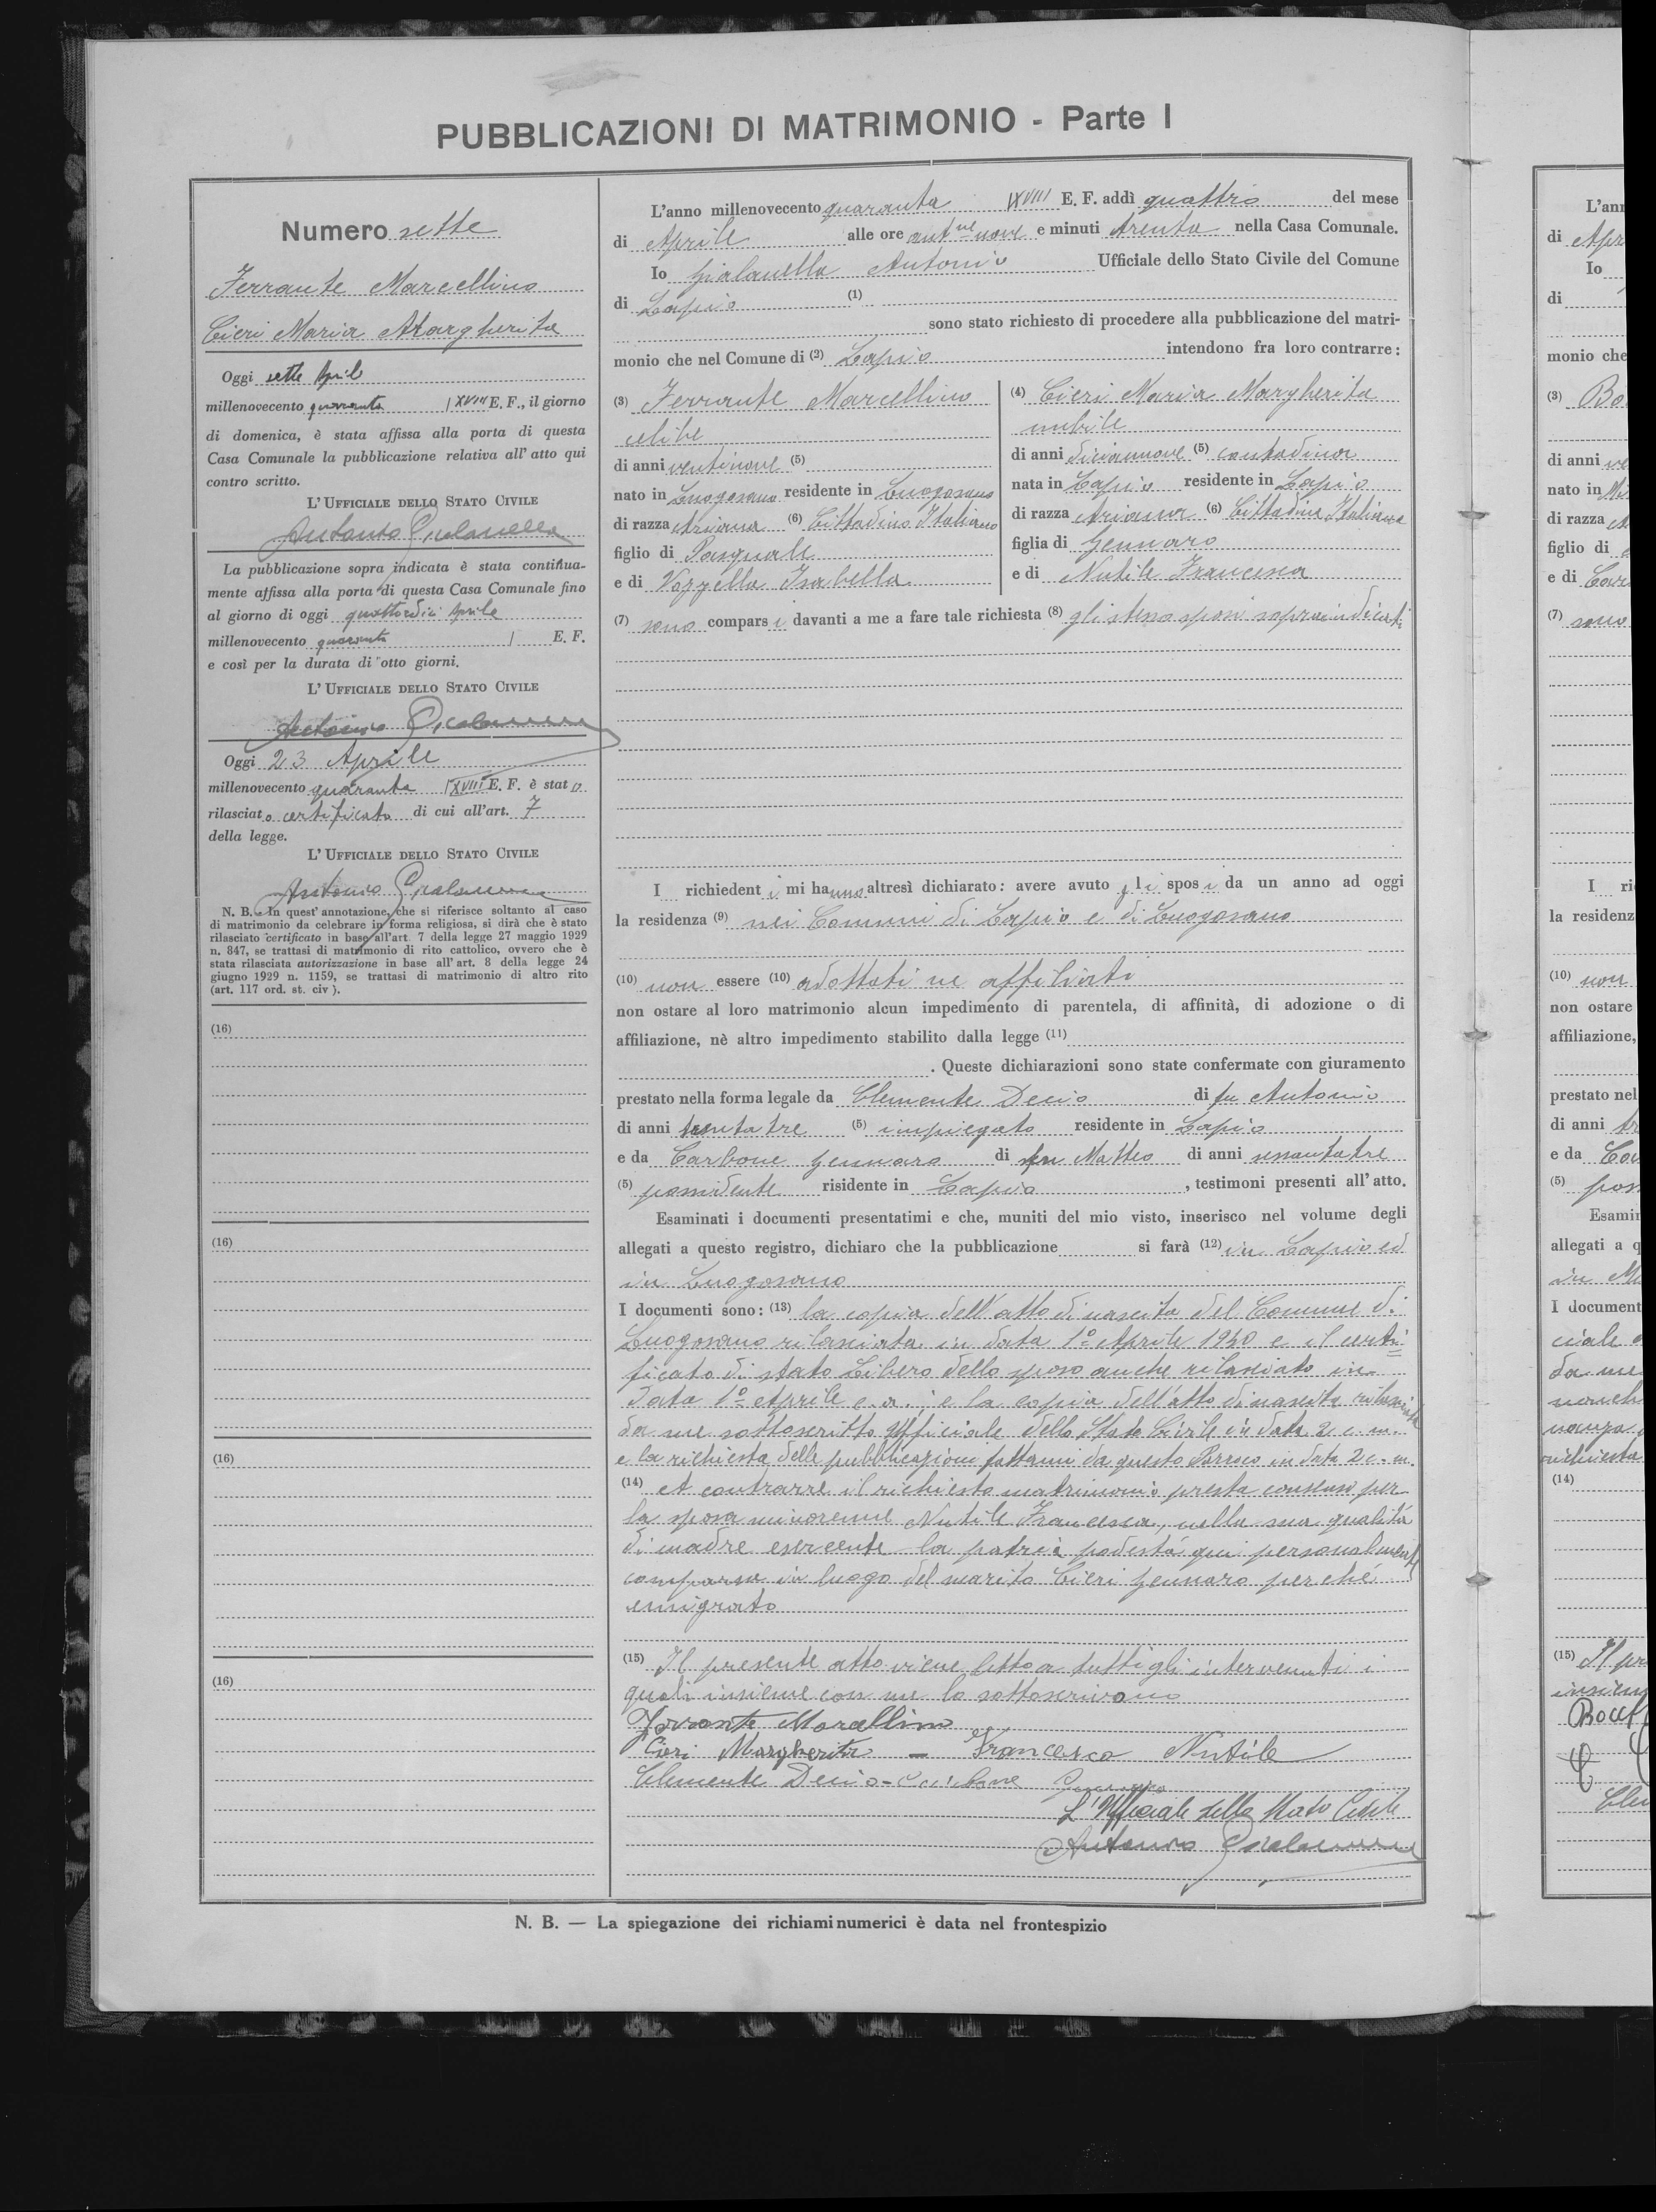 PUBBLICAZIONI DI MATRIMONIO - Parte I
Numero sette
Ferrante Marcellino
Cieri Maria Margherita
Oggi sette Aprile
millenovecento quaranta XVIII E. F., il giorno
di domenica, è stata affissa alla porta di questa
Casa Comunale la pubblicazione relativa all' atto qui
contro scritto.
L' UFFICIALE DELLO STATO CIVILE
Antonio Gialanella
La pubblicazione sopra indicata è stata continua-
mente affissa alla porta di questa Casa Comunale fino
al giorno di oggi quattordici Aprile
millenovecento quaranta E. F.
e così per la durata di otto giorni.
L' UFFICIALE DELLO STATO CIVILE
Antonio Gialanella
Oggi 23 Aprile
millenovecento quaranta XVIII E. F. è stato
rilasciato certificato di cui all'art. 7
della legge.
L' UFFICIALE DELLO STATO CIVILE
Antonio Gialanella
N. B. - In quest' annotazione, che si riferisce soltanto al caso
di matrimonio da celebrare in forma religiosa, si dirà che è stato
rilasciato certificato in base all'art. 7 della legge 27 maggio 1929
n. 847, se trattasi di matrimonio di rito cattolico, ovvero che è
stata rilasciata autorizzazione in base all' art. 8 della legge 24
giugno 1929 n. 1159, se trattasi di matrimonio di altro rito
(art. 117 ord. st. civ ).
(16)
(16)
(16)
(16)
L'anno millenovecento quaranta XVIII E. F. addì quattro del mese
di Aprile alle ore antne nove e minuti trenta nella Casa Comunale.
Io Gialanella Antonio Ufficiale dello Stato Civile del Comune
di Lapio (1)
sono stato richiesto di procedere alla pubblicazione del matri-
monio che nel Comune di (2) Lapio intendono fra loro contrarre:
(3) Ferrante Marcellino
celibe
di anni ventinove (5)
nato in Luogosano residente in Luogosano
di razza Ariana (6) Cittadino Italiano
figlio di Pasquale
e di Vozzella Isabella
(4) Cieri Maria Margherita
nubile
di anni diciannove (5) contadina
nata in Lapio residente in Lapio
di razza Ariana (6) Cittadina Italiana
figlia di Gennaro
e di Nutile Francesca
(7) sono comparsi davanti a me a fare tale richiesta (8) gli stessi sposi sopraindicati
I richiedenti mi hanno altresì dichiarato: avere avuto gli sposi da un anno ad oggi
la residenza (9) nei Comuni di Lapio e di Luogosano
(10) non essere (10) adottati ne affiliati
non ostare al loro matrimonio alcun impedimento di parentela, di affinità, di adozione o di
affiliazione, nè altro impedimento stabilito dalla legge (11)
. Queste dichiarazioni sono state confermate con giuramento
prestato nella forma legale da Clemente Decio di fu Antonio
di anni trentatre (5) impiegato residente in Lapio
e da Carbone Gennaro di fu Matteo di anni sessantatre
(5) possidente risidente in Lapio , testimoni presenti all' atto.
Esaminati i documenti presentatimi e che, muniti del mio visto, inserisco nel volume degli
allegati a questo registro, dichiaro che la pubblicazione si farà (12) in Lapio ed
in Luogosano
I documenti sono: (13) la copia dell'atto di nascita del Comune di
Luogosano rilasciata in data 1° Aprile 1940 e il certi=
ficato di stato Libero dello sposo anche rilasciato in
data 1° Aprile c.a.; e la copia dell'atto di nascita rilasciata
da me sottoscritto Ufficiale dello Stato Civile in data 2 c. m.
e la richiesta delle pubblicazioni fattami da questo Parroco in data 2 c. m.
(14) A contrarre il richiesto matrimonio presta consenso per
la sposa minorenne Nutile Francesca, nella sua qualità
di madre esercente la patria podestà qui personalmente
comparsa in luogo del marito Cieri Gennaro perché
emigrato
(15) Il presente atto viene letto a tutti gli intervenuti i
quali insieme con me lo sottoscrivono
Ferrante Marcellino
Cieri Margherita - Francesca Nutile
Clemente Decio - Carbone Gennaro
L'Ufficiale dello Stato Civile
Antonio Gialanella
N. B. — La spiegazione dei richiami numerici è data nel frontespizio
L'ann
di Apr
Io
di
monio che
(3)
di anni
nato in
di razza
figlio di
e di
(7) sono
I ri
la residenz
(10) non
non ostare
affiliazione,
prestato nel
di anni
e da
(5)
Esamin
allegati a q
I document
da me
(14)
(15) Il pr